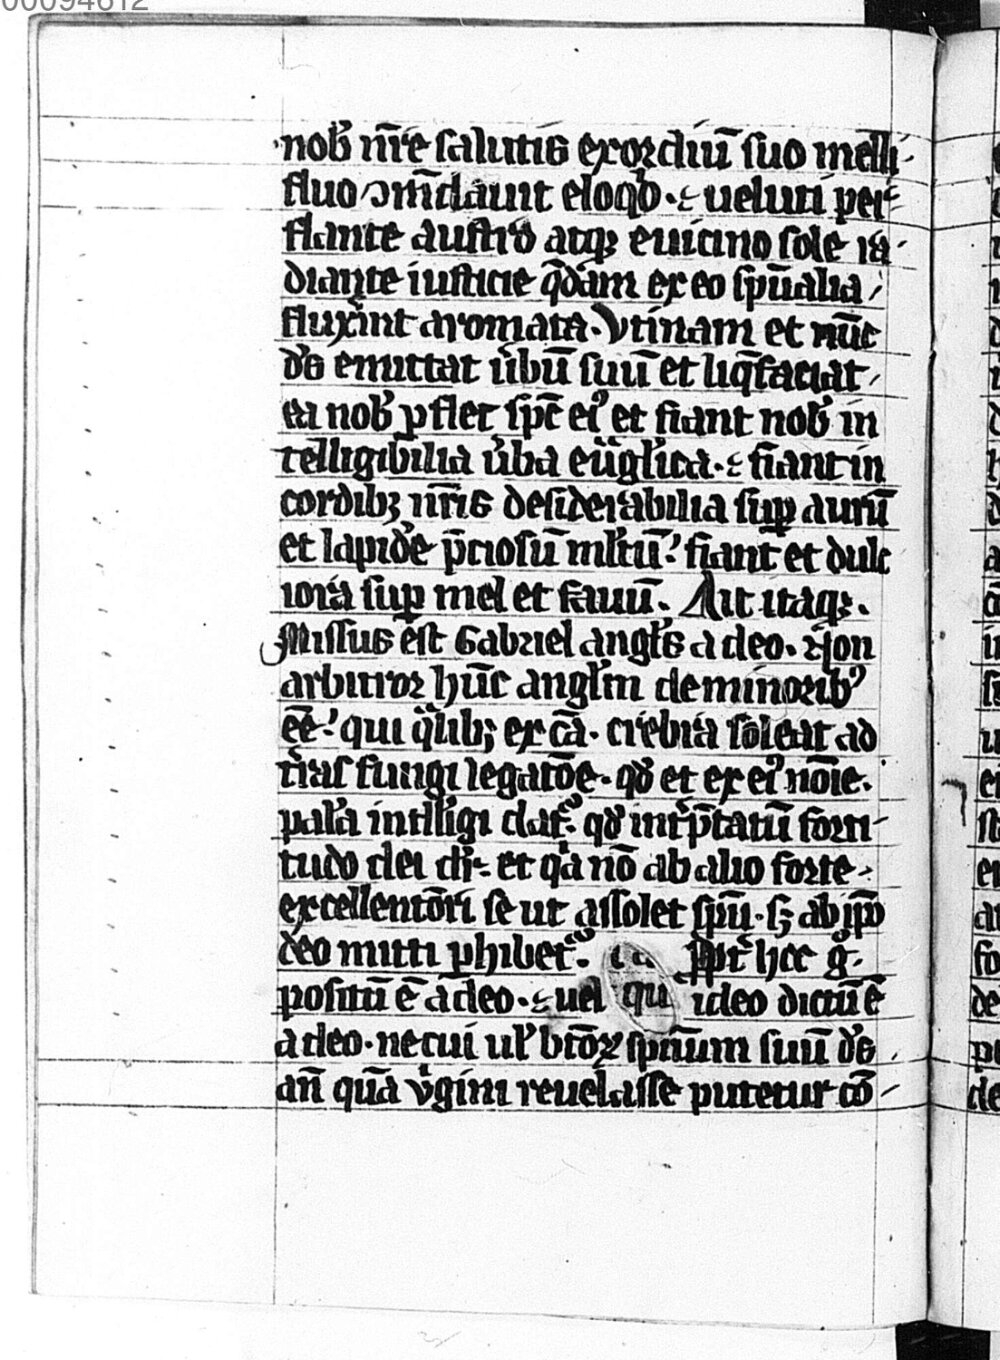 00094612
nob̾ nr̄e salutis exordiū suo melli
fluo ↄm̄dauit eloq̊. ⁊ ueluti per
flante austro atqꝫ e uicino sole ra
diante iusticie q̄dam ex eo sp̄ualia
fluxer̄int aromata. Vtinam et nūc
ds̄ emittat ūbū suū et liq̄faciat
ea nob̾ ꝑflet sp̄c eiꝰ et fiant nob̾ in
telligibilia ūba eūglica. ⁊ fiant in
cordibꝫ nr̄is desiderabilia suꝑ aurū
et lapidē p̄ciosū ml̄tū? fiant et dulc
iora suꝑ mel et fauū. Ait itaqꝫ.
Missus est Gabriel angl̄s a deo. Non
arbitror hūc angl̄m de minoribꝰ
eē? qui q̄libꝫ ex cā. crebra soleat ad
tr̄as fungi legatōe. qđ et ex eiꝰ noīe.
palā intelligi dat᷑. qđ int̄p̄tatū forti
tudo dei dr̄. et q̄a nō ab alio forte
excellentōri se ut assolet spū. sꝫ ab ip̄o
deo mitti ꝑhibet᷑. Ppt̄ hec g̊
positū ē a deo. ⁊ uel ideo dictū ē
a deo. ne cui ul̄ btōꝝ sp̄iuum suū ds̄
an̄ quā v̄gini reuelasse putetur cō